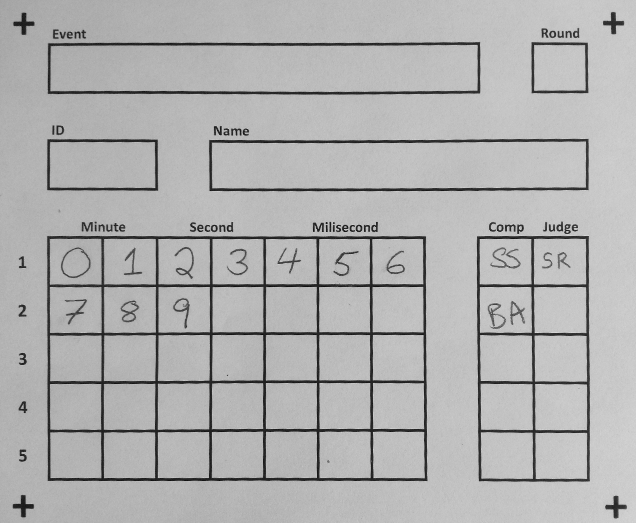 Event Round
ID Name
Minute Second Milisecond Comp Judge
1 0 1 2 3 4 5 6 SS SR
2 7 8 9 BA
3
4
5